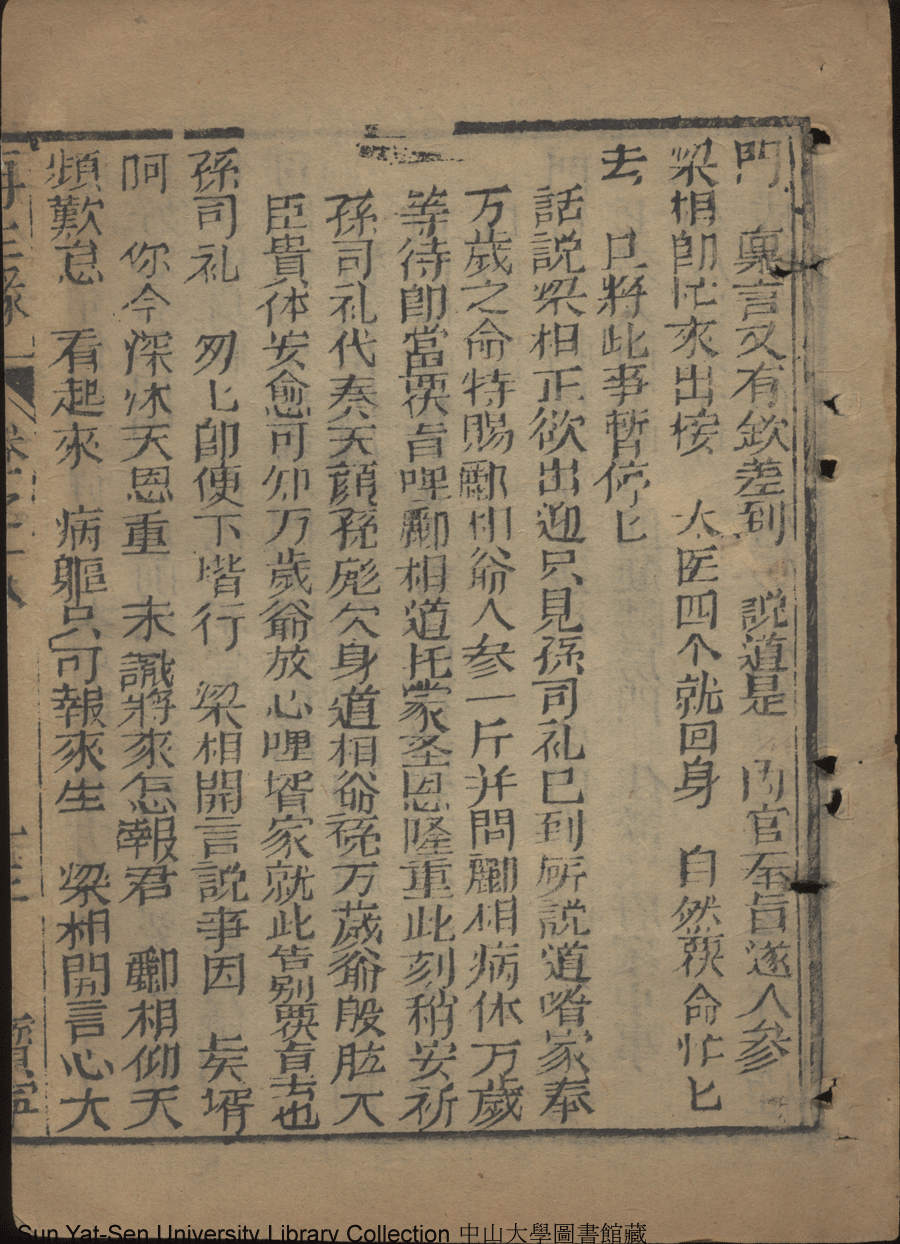 門　稟言又有欽差到　說道是　內官奉旨送人參
梁相卽忙來出接　太医四个就回身　自然覆命忙匕
去　且將此事暫停匕
話説梁相正欲出迎只見孫司礼已到所説道喒家奉
万歲之命特賜酈相爺人参一斤并問酈相病体万歲
等待卽當覆旨哩酈相道托蒙圣恩隆重此刻稍安祈
孫司礼代奏天顔孫彪欠身道相爺孫万歲爺殷肱大
臣貴体安愈可知万歲爺放心哩壻家就此告別覆旨去也
孫司礼　匆匕卽便下堦行　梁相開言説事因　賢壻
呵　你今深沐天恩重　未識將來怎報君　酈相仰天
頻歎息　看起來　病軀只可報來生　梁相開言心大
再生緣　卷之十八　寶寧
Sun Yat-Sen University Library Collection 中山大學圖書館藏